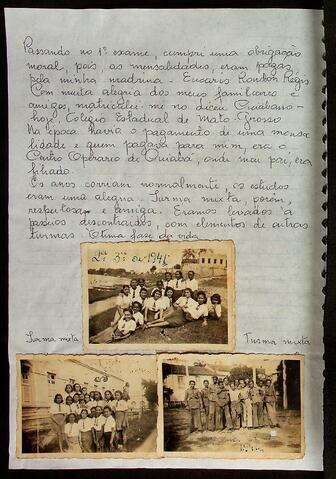 Passando no 1º exame, cumpri uma obrigação
moral, pois, as mensalidades, eram pagas
pela minha madrinha - Eucaris Rondon Régis
Com muita alegria dos meus familiares e
amigos, matriculei-me no Liceu Cuiabano -
hoje, Colégio Estadual de Mato-Grosso
Na época havia o pagamento de uma mensa
lidade e quem pagava para mim, era o
Centro Operário de Cuiabá, onde meu pai, era
filiado.
Os anos corriam normalmente, os estudos
eram uma alegria. Turma mixta, porém,
respeitosa e amiga. Éramos levados à
passeios descontraídos, com elementos de outras
turmas. Ótima fase da vida.
de 1941
Turma mixta
Turma mixta